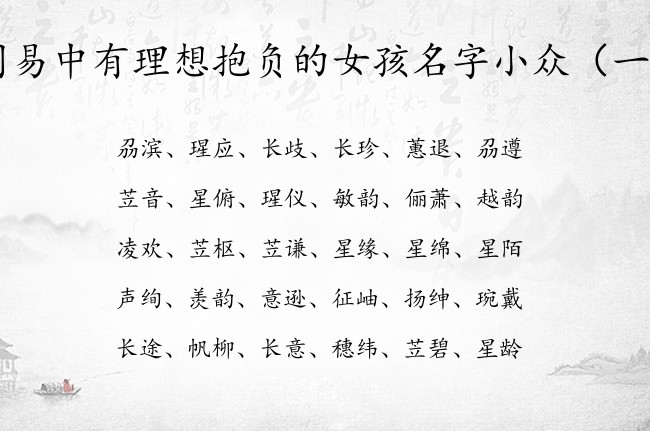 周易中有理想抱负的女孩名字小众（一
刕滨、瑆应、长歧、长珍、蕙退、刕遵
苙音、星俯、瑆仪、敏韵、俪萧、越韵
凌欢、苙枢、苙谦、星缘、星绵、星陌
声绚、羡韵、意逊、征岫、扬绅、琬戴
长途、帆柳、长意、穗纬、苙碧、星龄